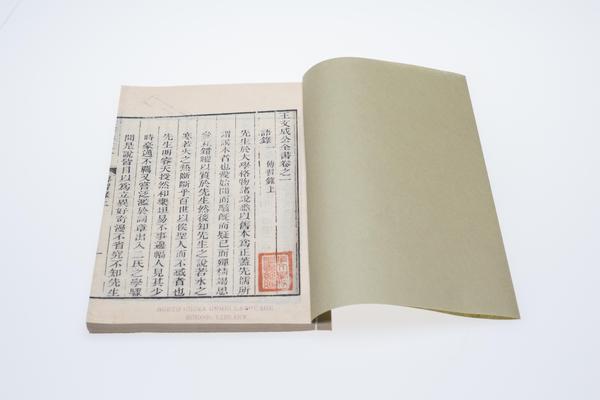 王文成公全書卷之一
語錄一 傳習錄上
先生於大學格物諸說悉以舊本爲正蓋先儒所
謂誤本者也愛始聞而駭旣而疑已而殫精竭思
參互錯縱以質於先生然後知先生之說若水之
寒若火之熱斷斷乎百世以俟聖人而不惑者也
先生明睿天授然和樂坦易不事邊幅人見其少
時豪邁不羈又嘗泛濫於詞章出入二氏之學驟
聞是說皆目以爲立異好奇漫不省究不知先生
NORTH CHINA UNION LANGUAGE
SCHOOL LIBRARY